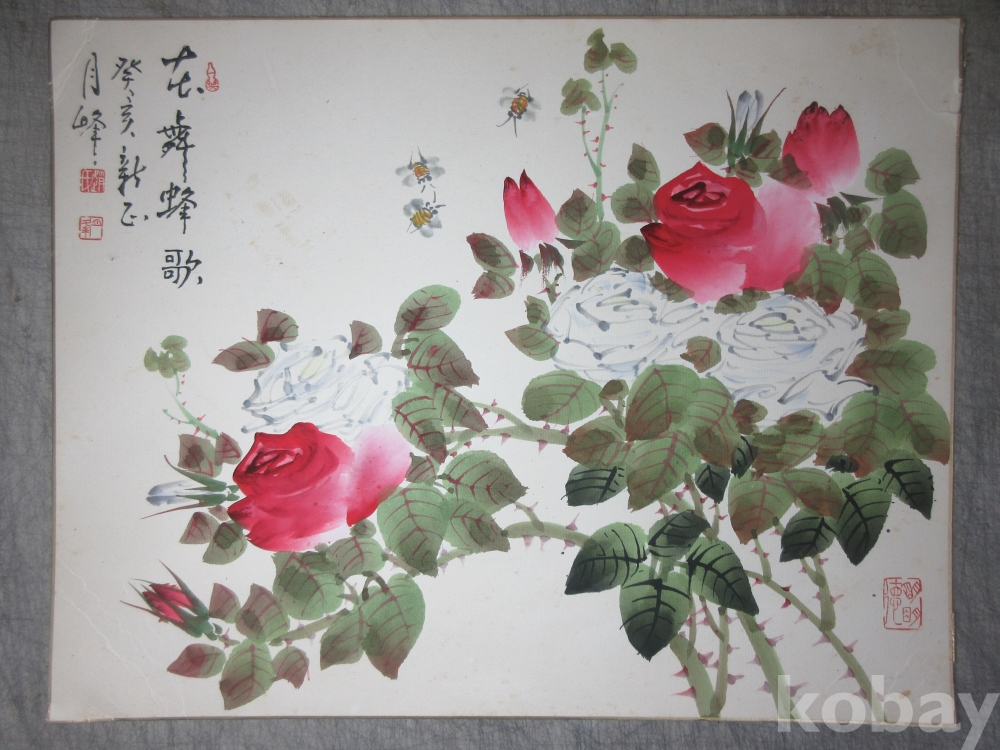 花舞蜂歌
癸亥新正
月峰
明明德
kobay